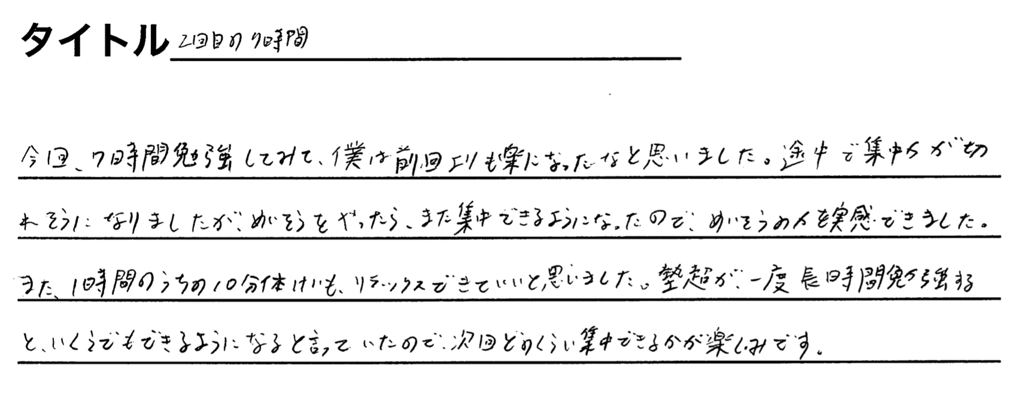 タイトル 2回目の7時間
今回、7時間勉強してみて、僕は前回よりも楽になったなと思いました。途中で集中力が切
れそうになりましたが、めいそうをやったら、また集中できるようになったので、めいそうの力を実感できました。
また、1時間のうちの10分休けいも、リラックスできていいと思いました。塾超が、一度長時間勉強する
と、いくらでもできるようになると言っていたので、次回どのくらい集中できるかが楽しみです。